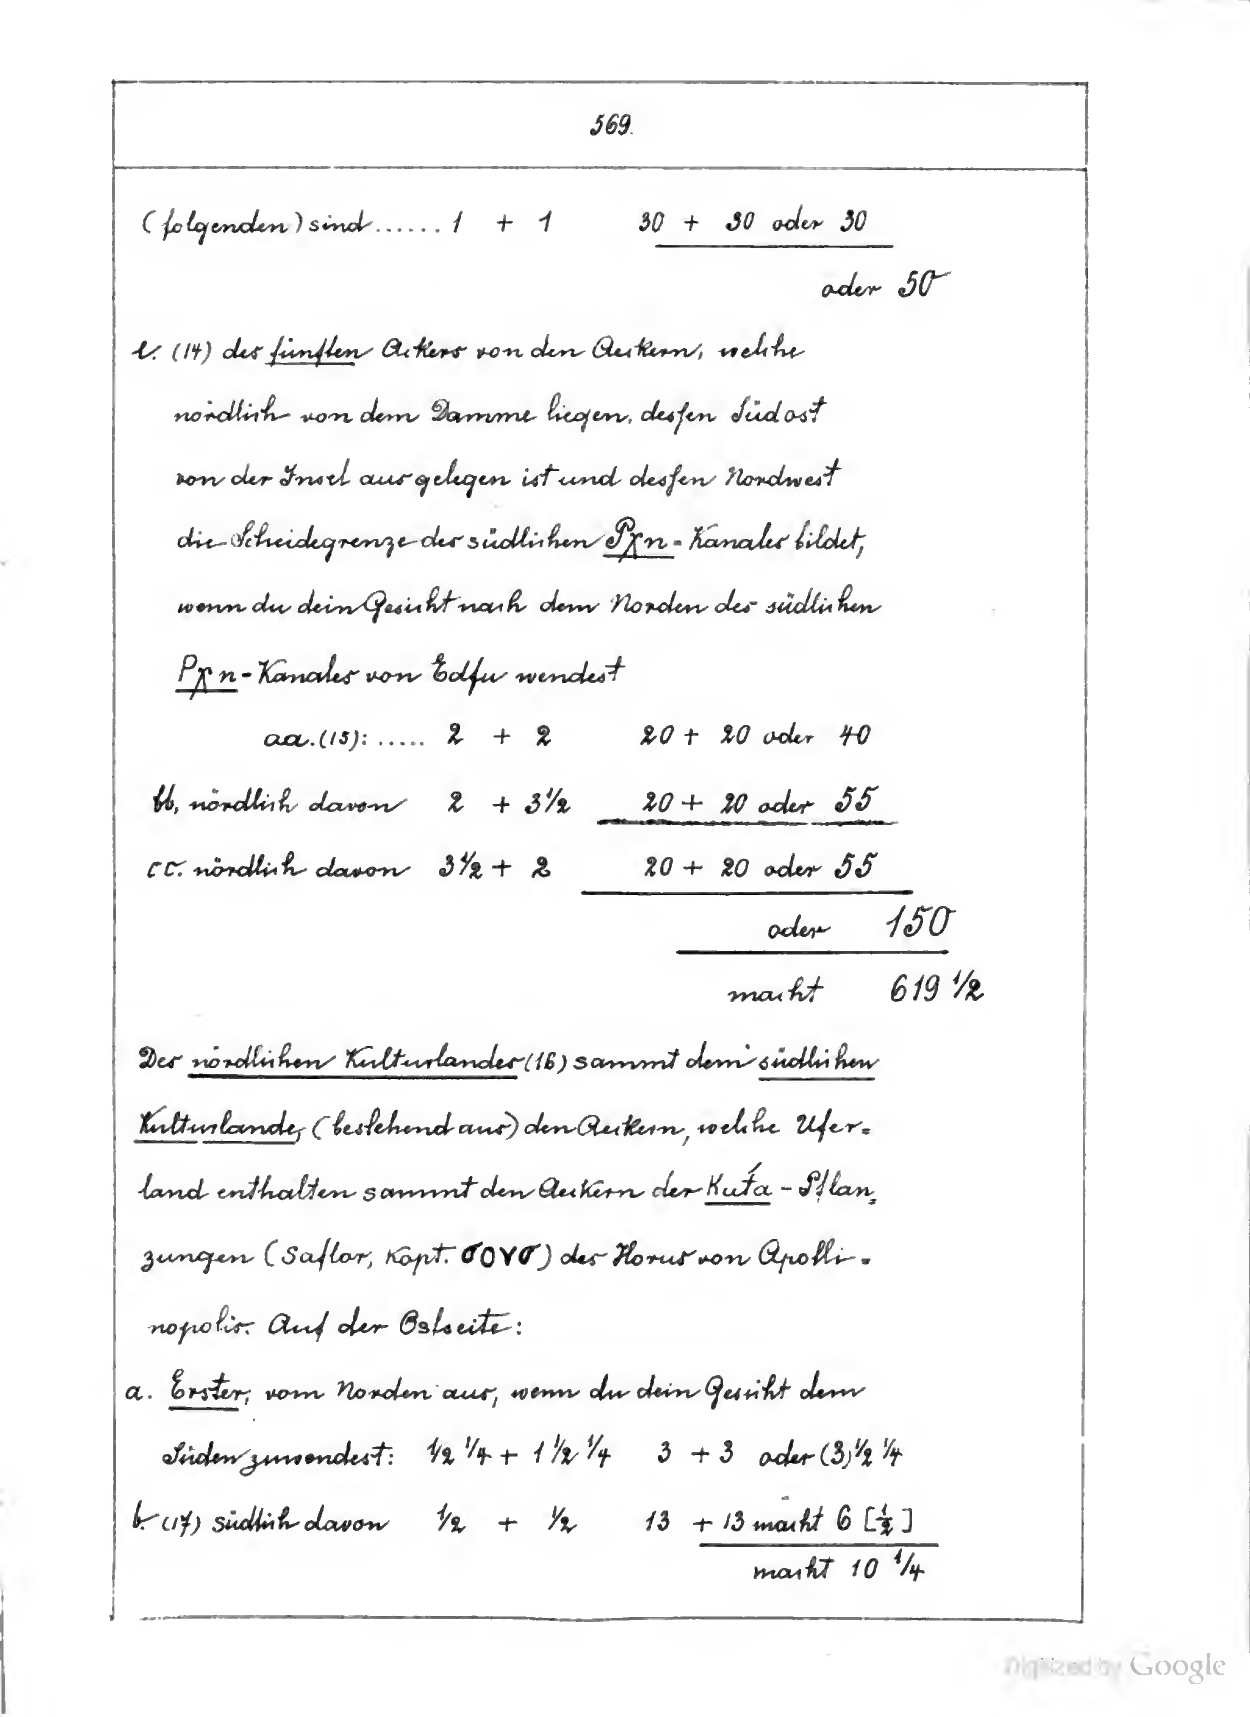 569.
(folgenden) sind ...... 1 + 1 30 + 30 oder 30
oder 50
e. (14) des fünften Ackers von den Aeckern, welche
nördlich von dem Damme liegen, dessen Südost
von der Insel aus gelegen ist und dessen Nordwest
die Scheidegrenze des südlichen Pχn-Kanales bildet,
wenn du dein Gesicht nach dem Norden des südlichen
Pχn-Kanales von Edfu wendest
aa. (15): ..... 2 + 2 20 + 20 oder 40
bb, nördlich davon 2 + 3 1/2 20 + 20 oder 55
cc. nördlich davon 3 1/2 + 2 20 + 20 oder 55
oder 150
macht 619 1/2
Des nördlichen Kulturlandes (16) sammt dem südlichen
Kulturlande, (bestehend aus) den Aeckern, welche Ufer-
land enthalten sammt den Aeckern der Kuťa-Pflan-
zungen (Saflor, Kopt. ϭΟΥϭ) des Horus von Apolli-
nopolis. Auf der Ostseite:
a. Erster, vom Norden aus, wenn du dein Gesicht dem
Süden zuwendest: 1/2 1/4 + 1 1/2 1/4 3 + 3 oder (3) 1/2 1/4
b. (17) südlich davon 1/2 + 1/2 13 + 13 macht 6 [1/2]
macht 10 1/4
Digitized by Google